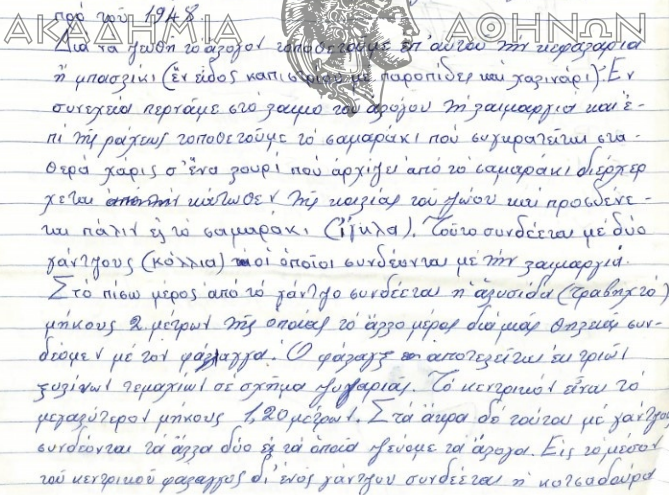 πρό τοῦ 1948
ΑΚΑΔΗΜΙΑ ΑΘΗΝΩΝ
Διά νά ζωθῆ τό ἄλογον τοποθετοῦμε ἐπ' αὐτοῦ τήν κεφαλαριά
ἤ μπασλίκι (ἕν εἶδος καπιστρίου μέ παροπίδες καί χαλινάρι). Ἐν
συνεχεία περνᾶμε στό λαιμό τοῦ ἀλόγου τή λαιμαργιά καί ἐ-
πί τῆς ράχεως τοποθετοῦμε τό σαμαράκι πού συγκρατεῖται στα-
θερά χάρις σ' ἕνα λουρί πού ἀρχίζει ἀπό τό σαμαράκι διέρχερ
χεται κάτωθεν τῆς κοιλίας τοῦ ζώου καί προσδένε-
ται πάλιν εἰς τό σαμαράκι (ἴγκλα). Τοῦτο συνδέεται μέ δύο
γάντζους (κόλλια) οἱ ὁποῖοι συνδέονται μέ τήν λαιμαργιά.
Στό πίσω μέρος ἀπό τό γάντζο συνδέεται ἡ ἁλυσίδα (τραβηχτό)
μήκους 2 μέτρων τῆς ὁποίας τό ἄλλο μέρος διά μιᾶς θηλειᾶς συν-
δέομεν μέ τόν φάλαγγα. Ὁ φάλαγξ ἀποτελεῖται ἐκ τριῶν
ξυλίνων τεμαχίων σέ σχῆμα ζυγαριᾶς. Τό κεντρικόν εἶναι τό
μεγαλύτερον μήκους 1,20 μέτρων. Στά ἄκρα δέ τούτου μέ γάντζου
συνδέονται τά ἄλλα δύο εἰς τά ὁποῖα ζεύομε τά ἄλογα. Εἰς τό μέσον
τοῦ κεντρικοῦ φάλαγγος δι' ἑνός γάντζου συνδέεται ἡ κοτσαδούρα